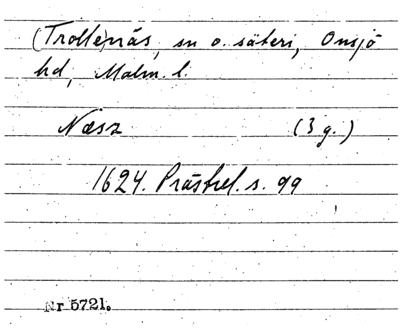 (Trolle)näs, sn o. säteri, Onsjö
hd, Malm. l.
Næsz (3 g.)
1624. Prästrel. s. 99
Nr 5721.